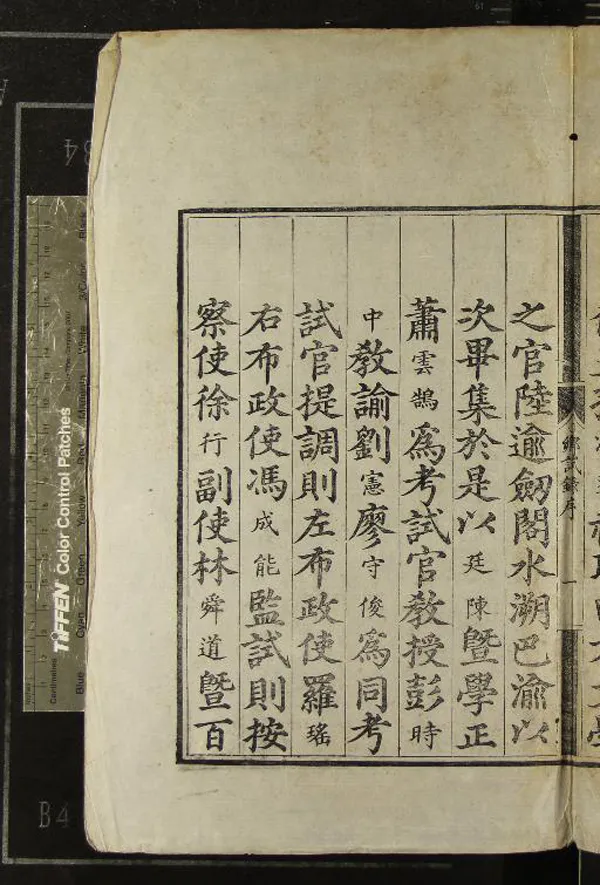 之官陸逾劒閣水溯巴渝以
次畢集於是以廷陳曁學正
蕭雲鵠為考試官教授彭時
中教諭劉憲廖守俊為同考
試官提調則左布政使羅瑤
右布政使馮成能監試則按
察使徐行副使林舜道曁百
鄉試錄序
一
TIFFEN Color Control Patches
Blue
Cyan
Green
Yellow
Red
Magenta
White
3/Color
Black
Inches
Centimetres
B4